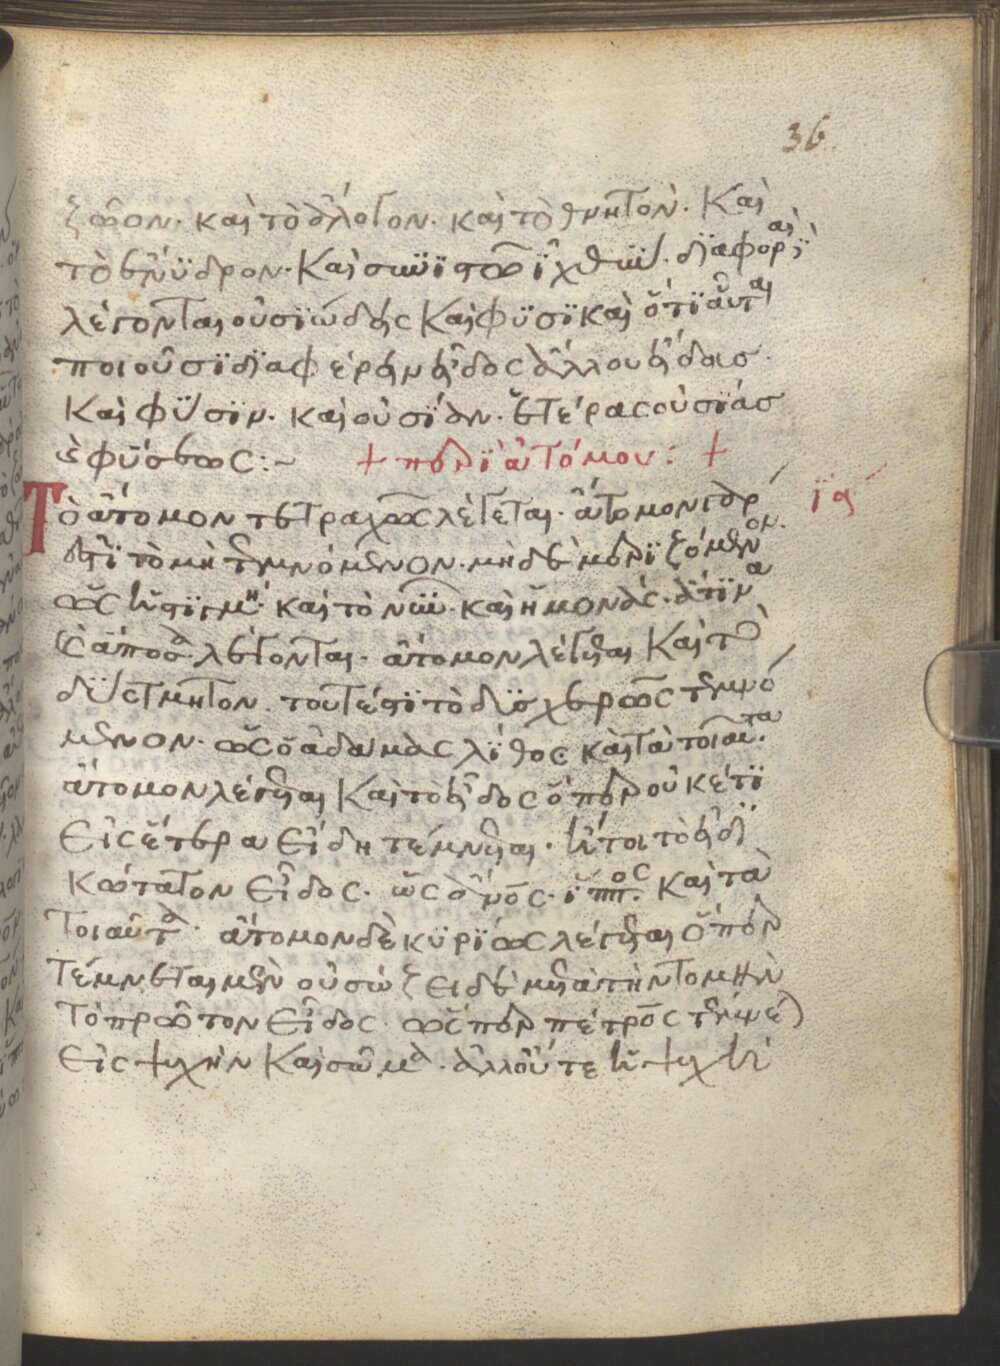 36
ζῶον· καὶ τὸ ἄλογον· καὶ τὸ θνητὸν· Καὶ
τὸ ἔνϋδρον· Καὶ συνϊστῶσι ἰχθῦν· διαφοραὶ
λέγονται οὐσϊώδης Καὶ φϋσϊκαὶ ὅτϊ αὗται
ποιοῦσϊ διαφέρην εἶδος ἄλλου εἴδους·
Καὶ φϋσϊν· καὶ οὐσΐαν· ἑτέρας οὐσϊάς
ἐ φϋσεως :~ + περὶ ἀτόμου: +
Τὸ ἄτομον τετραχῶς λέγεται· ἄτομον γὰρ ϊα
ἐστϊ τὸ μὴ τεμνόμενον· μηδὲ μερϊζόμενον·
ὡς ἡ στιγμὴ· καὶ τὸ νῦν· καὶ ἡ μονὰς· ἅτινα
ἄποσα λέγονται· ἄτομον λέγεται Καὶ τὸ
δϋστμητον· τουτέστϊ τὸ δϋσχερῶς τεμνό
μενον· ὡς ὁ ἀδαμὰς λίθος καὶ τὰ τοιαῦτα·
ἄτομον λέγεται Καὶ τὸ εἶδος ὅπερ οὐκέτϊ
εἰς ἕτερα εἴδη τέμνεται· ἤτοι τὸ εἰδϊ
κώτατον εἶδος· ὡς ὁ ἄνος· ἵππος· Καὶ τὰ
τοιαῦτα· ἄτομον δὲ κϋρϊως λέγεται ὅπερ
τέμνεται μὲν οὐ σώζει δὲ μετὰ τὴν τομὴν
τὸ πρῶτον εἶδος· ὥσπερ πέτρος τέμνε)
εἰς ψυχὴν Καὶ σῶμα· ἀλλ' οὔτε ἡ ψυχὴ